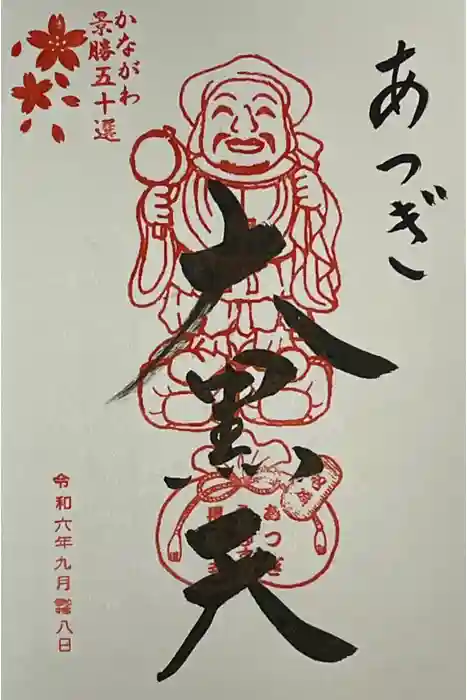 あつぎ
大黒天
かながわ
景勝五十選
令和六年九月 八日